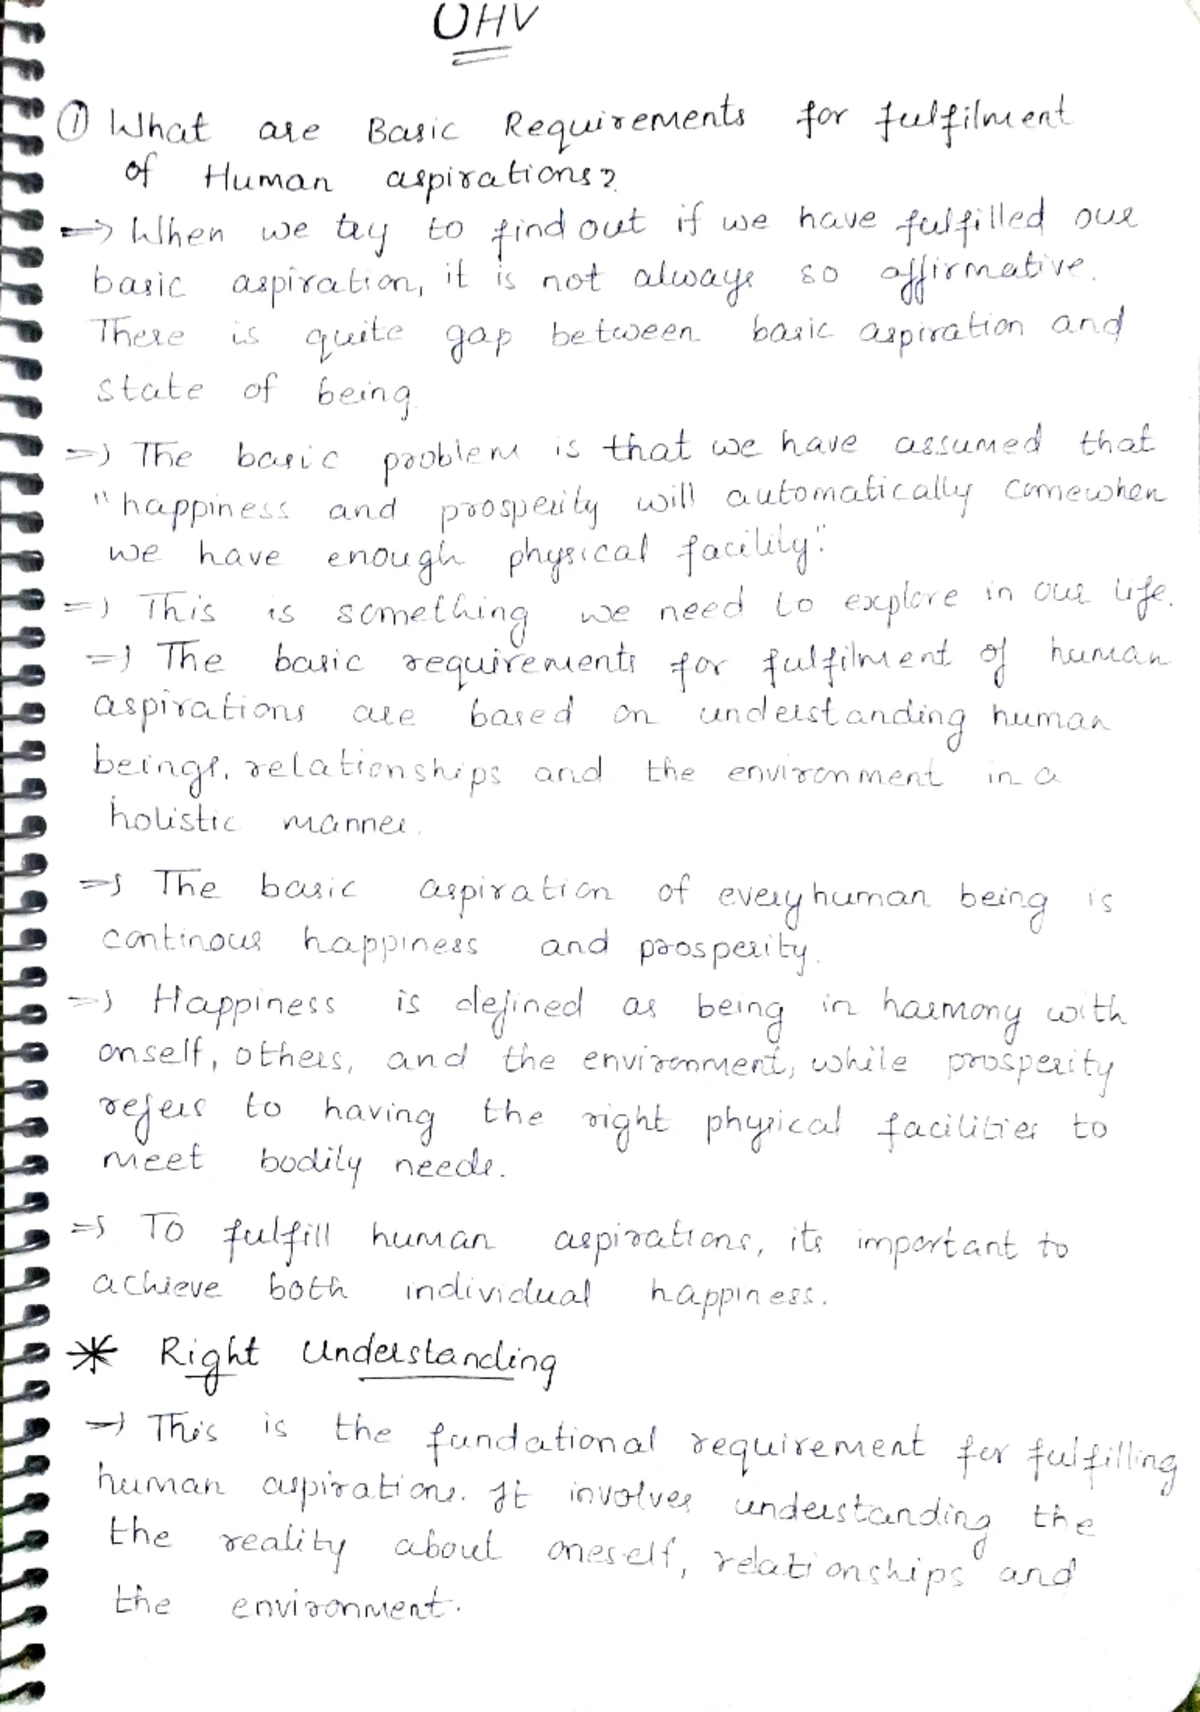 UHV
① What are Basic Requirements for fulfilment
of Human aspirations?
=> When we try to find out if we have fulfilled our
basic aspiration, it is not always so affirmative.
There is quite gap between basic aspiration and
state of being.
=> The basic problem is that we have assumed that
"happiness and prosperity will automatically comewhen
we have enough physical facility."
=> This is something we need to explore in our life.
=> The basic requirements for fulfilment of human
aspirations are based on understanding human
beings, relationships and the environment in a
holistic manner.
=> The basic aspiration of every human being is
continous happiness and prosperity.
=> Happiness is defined as being in harmony with
onself, others, and the environment, while prosperity
refers to having the right physical facilities to
meet bodily needs.
=> To fulfill human aspirations, its important to
achieve both individual happiness.
* Right Understanding
=> This is the fundational requirement for fulfilling
human aspirations. It involves understanding the
the reality about oneself, relationships and
the environment.